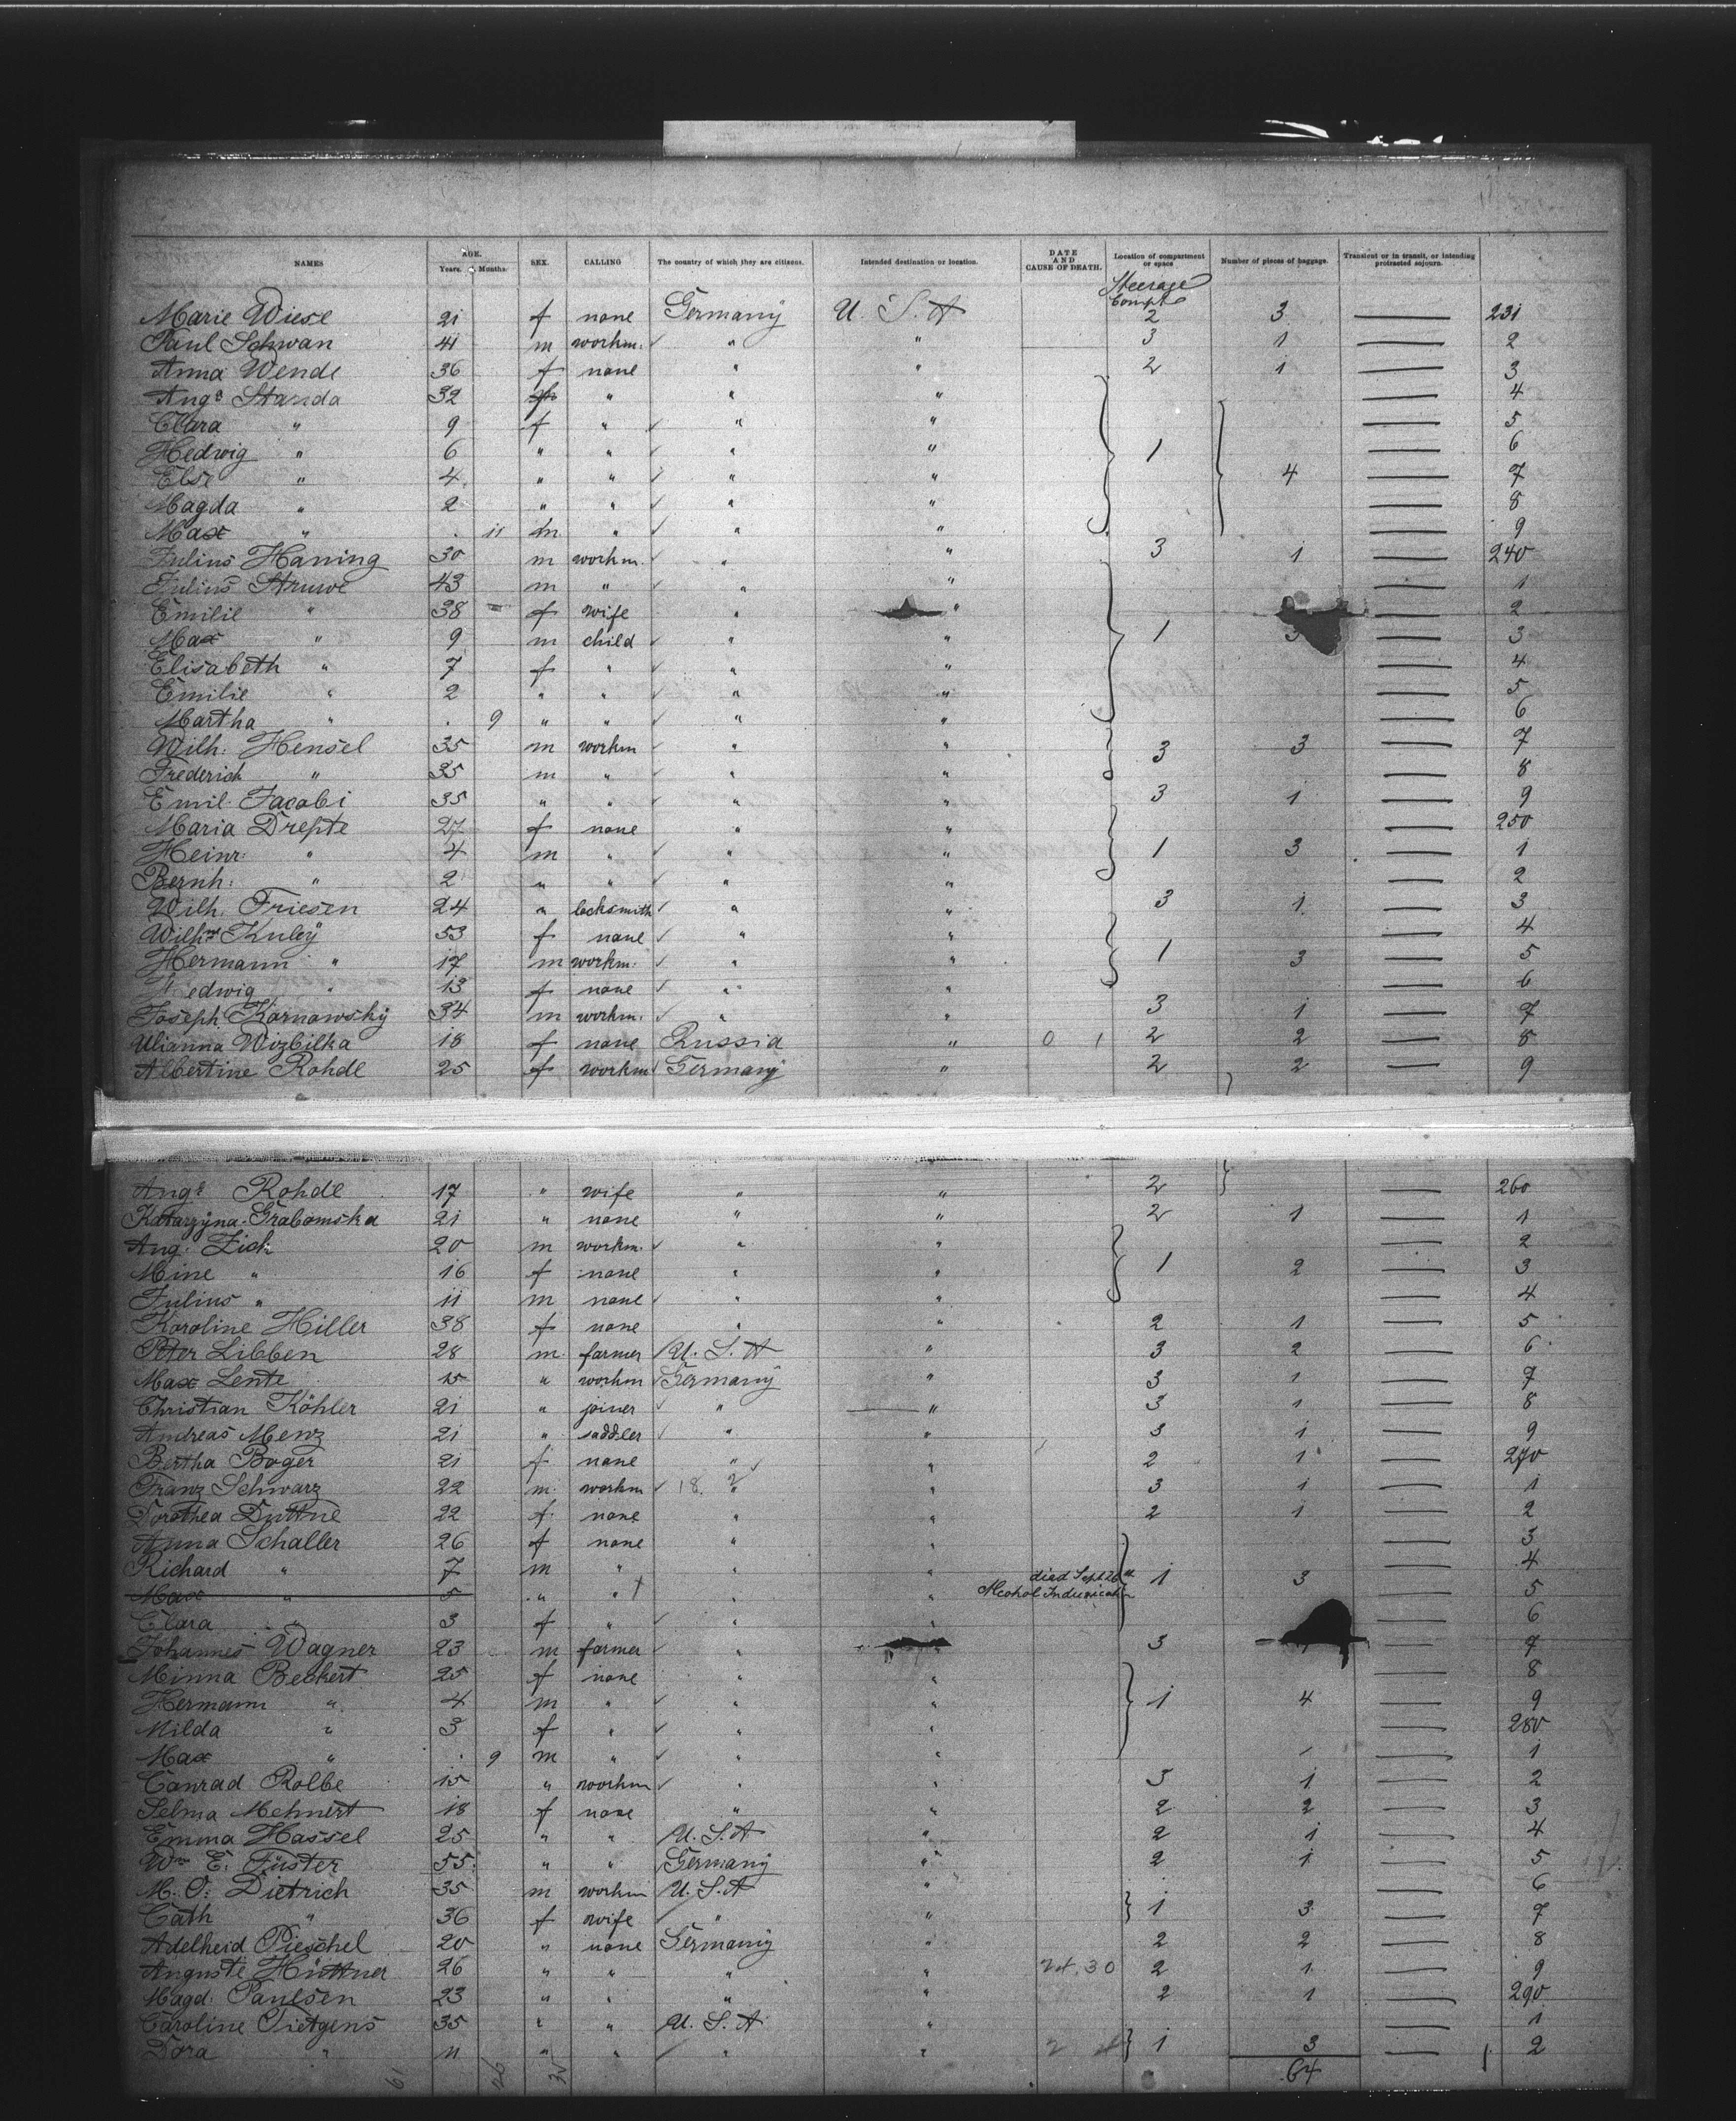 NAMES AGE. Years. Months. SEX. CALLING The country of which they are citizens. Intended destination or location. DATE AND CAUSE OF DEATH. Location of compartment or space Number of pieces of baggage. Transient or in transit, or intending protracted sojourn.
Steerage Compt
Marie Wiese 21 f none Germany U. S. A 2 3 — 231
Paul Schwan 41 m workm. " " 3 1 — 2
Anna Wende 36 f none " " 2 1 — 3
Augs Standa 32 " " " — 4
Clara " 9 f " " " — 5
Hedwig " 6 " " " " 1 — 6
Else " 4 " " " " 4 — 7
Magda " 2 " " " " — 8
Max " 11 m " " " — 9
Julius Haning 30 m workm. " " 3 1 — 240
Julius Struwe 43 m " " " — 1
Emilie " 38 f wife " " — 2
Max " 9 m child " " 1 3 — 3
Elisabeth " 7 f " " " — 4
Emilie " 2 " " " " — 5
Martha " 9 " " " " — 6
Wilh: Hensel 35 m workm " " 3 3 — 7
Frederich " 35 m " " " — 8
Emil Jacobi 35 " " " " 3 1 — 9
Maria Drepte 27 f none " " — 250
Heinr: " 4 m " " " 1 3 — 1
Bernh: " 2 " " " " — 2
Wilh. Friesen 24 " locksmith " " 3 1 — 3
Wilhme Kuley 53 f none " " — 4
Hermann " 17 m workm. " " 1 3 — 5
Hedwig " 13 f none " " — 6
Joseph Karnowsky 34 m workm. " " 3 1 — 7
Ulianna Wizbilka 18 f none Russia " 0 1 2 2 — 8
Albertine Rohde 25 f workm Germany " 2 2 — 9
Augs Rohde 17 " wife " " 2 — 260
Katarzyna Grabomska 21 " none " " 2 1 — 1
Aug. Zich 20 m workm. " " — 2
Mine " 16 f none " " 1 2 — 3
Julius " 11 m none " " — 4
Karoline Hiller 38 f none " " 2 1 — 5
Peter Libben 28 m. farmer U. S. A " 3 2 — 6
Max Lente 15 " workm Germany " 3 1 — 7
Christian Köhler 21 " joiner " " 3 1 — 8
Andreas Menz 21 " saddler " " 3 1 — 9
Bertha Boger 21 f none " " 2 1 — 270
Franz Schwarz 22 m. workm 18. 2 " " 3 1 — 1
Dorothea Duttne 22 f. none " " 2 1 — 2
Anna Schaller 26 f none " " — 3
Richard " 7 m " " " 1 3 — 4
Max " 5 " " † " " died Sept 26th Alcohol — 5
Clara " 3 f " " " — 6
Johannes Wagner 23 m farmer " " 3 — 7
Minna Beckert 25 f none " " — 8
Hermann " 4 m " " " 1 4 — 9
Milda " 3 f " " " — 280
Max " 9 m " " " — 1
Conrad Rolbe 15 " workm " " 3 1 — 2
Selma Mehnert 18 f none " " 2 2 — 3
Emma Hassel 25 " " U. S. A " 2 1 — 4
Wm E. Füster 55 " " Germany " 2 1 — 5
M. O: Dietrich 35 m workm U. S. A " — 6
Cath " 36 f wife " " 1 3 — 7
Adelheid Pieschel 20 " none Germany " 2 2 — 8
Auguste Hüttner 26 " " " " 24.30 2 1 — 9
Magd: Paulsen 23 " " " " 2 1 — 290
Caroline Tietgens 35 " " U. S. A " — 1
Dora " 11 " " " " 1 3 — 2
61 26 64